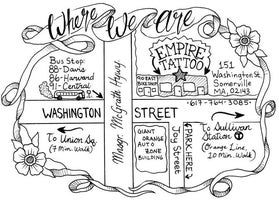 Where We are
Bus Stop:
88-Davis
86-Harvard
91-Central
EMPIRE
TATTOO
GO EAST
BIKE
151
Washington St.
Somerville
MA, 02143
-617-764-3085-
WASHINGTON STREET
Mnsgr McGrath Highway
To Union Sq.
(7 Min. Walk)
GIANT
ORANGE
AUTO
ZONE
BUILDING
Joy Street
PARK HERE
To Sullivan
Station T
(Orange Line,
10 Min. Walk)